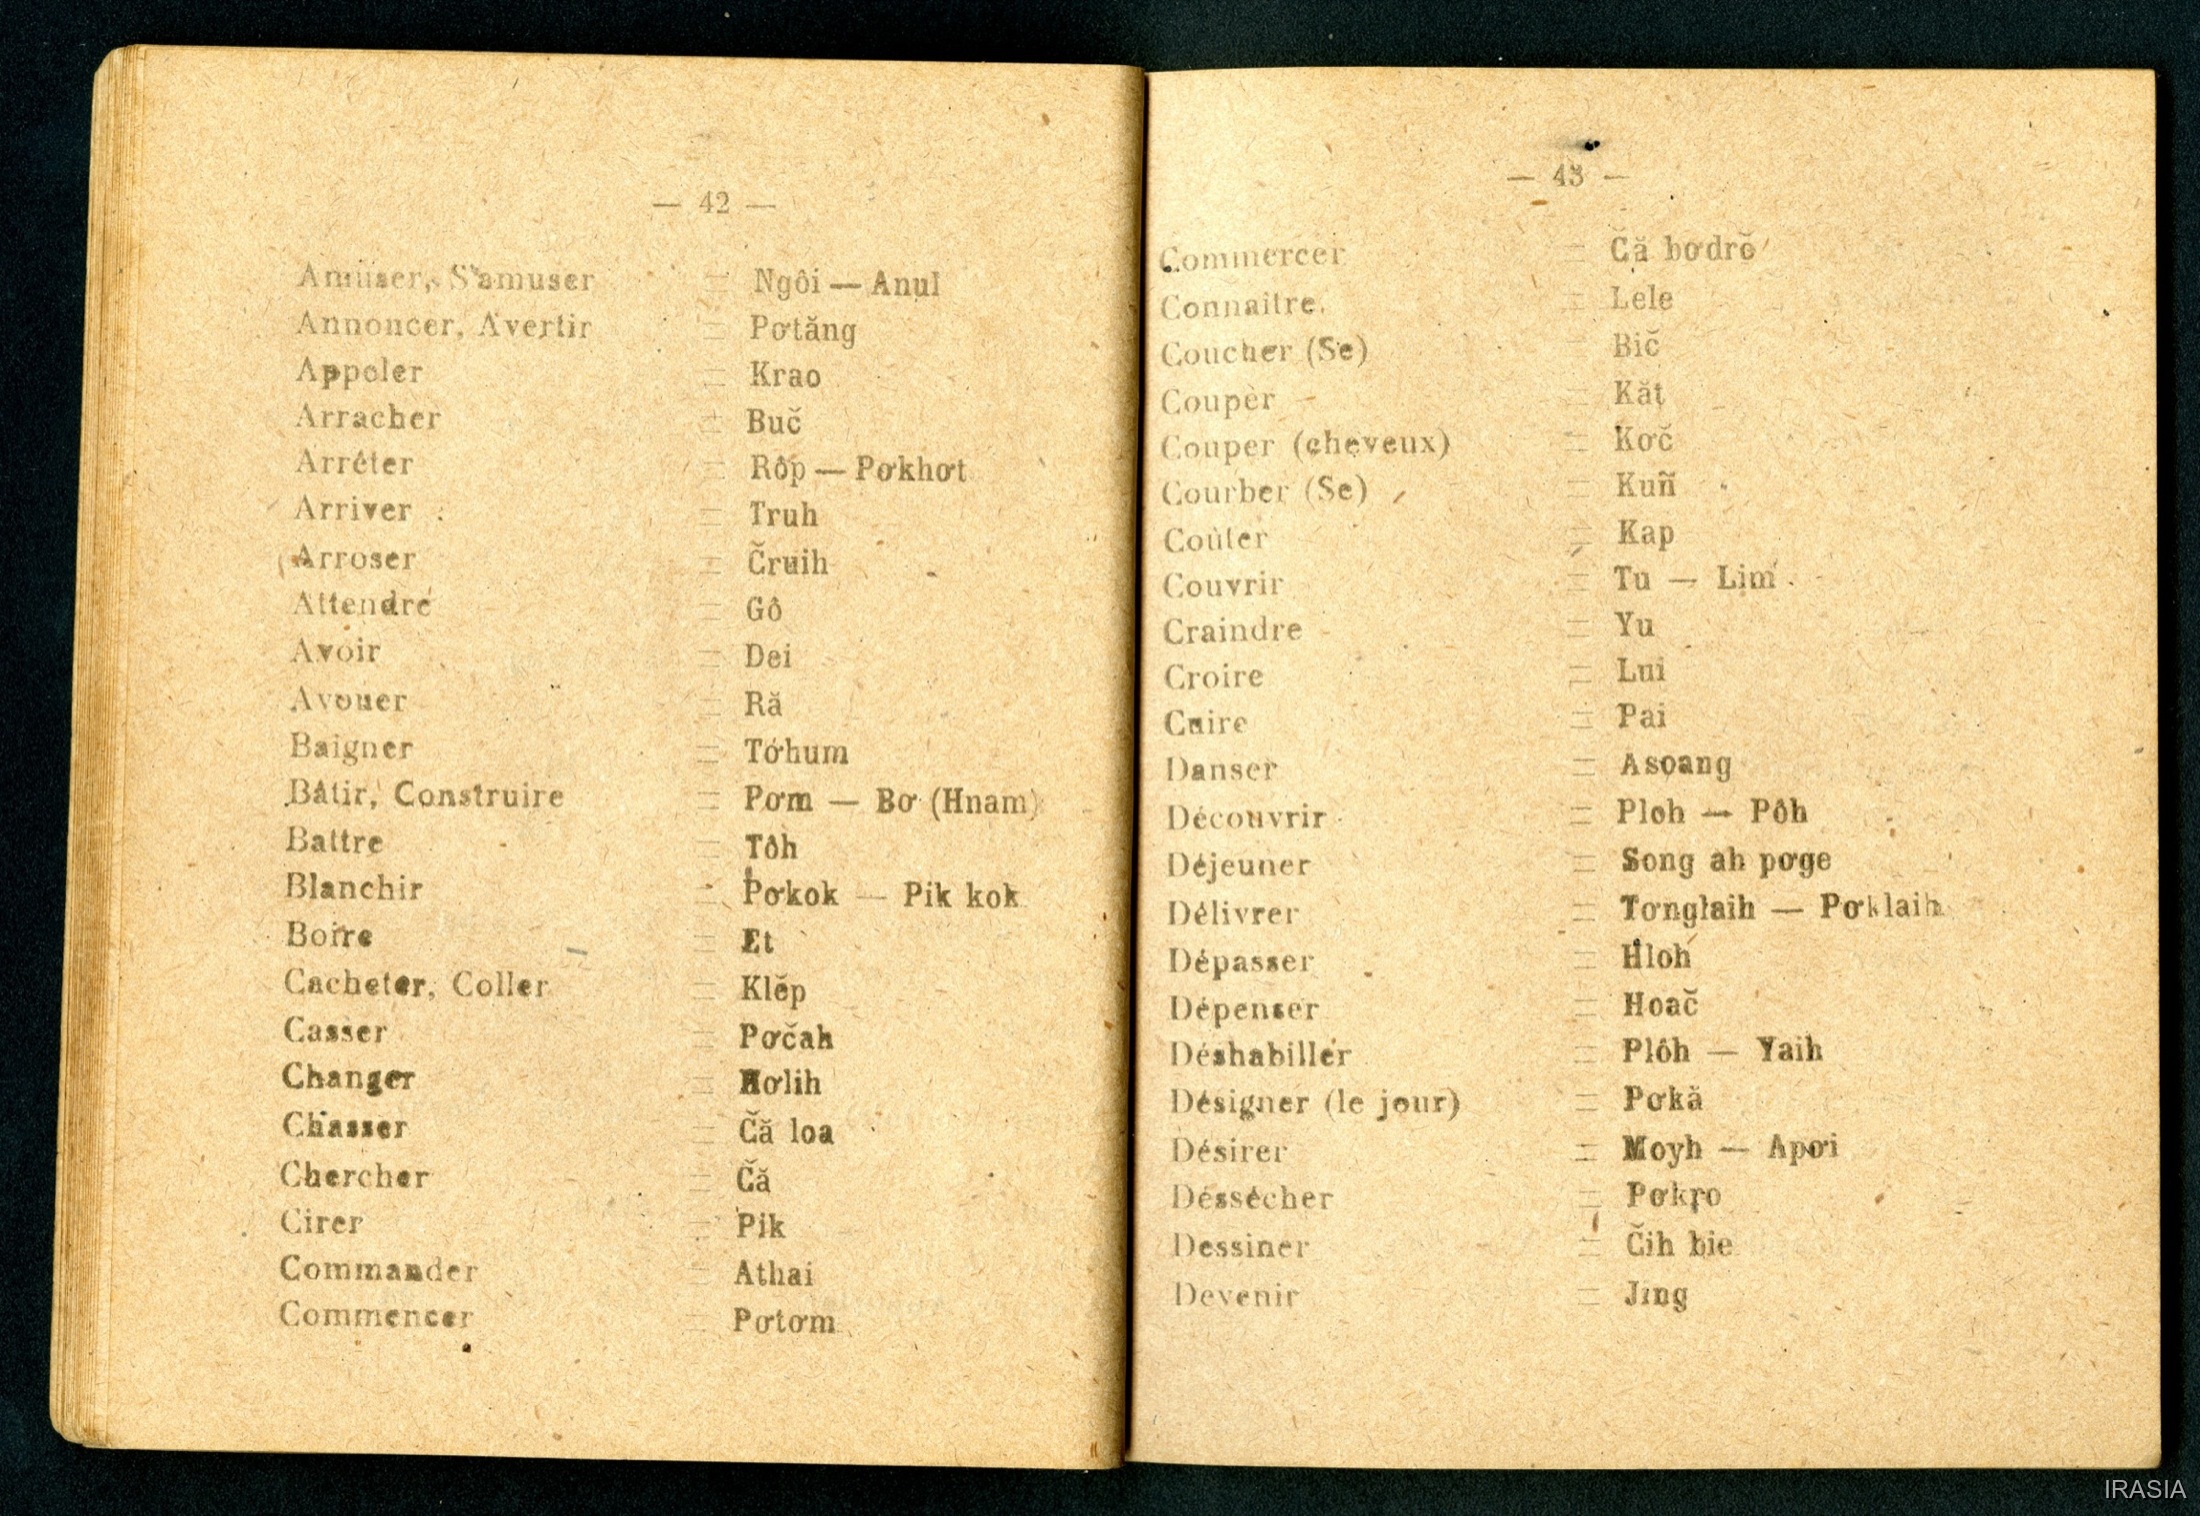 — 42 —
Amuser, S'amuser = Ngôi — Anul
Annoncer, Avertir = Pơtăng
Appeler = Krao
Arracher = Buč
Arrêter = Rôp — Pơkhơt
Arriver = Truh
Arroser = Čruih
Attendre = Gô
Avoir = Dei
Avouer = Ră
Baigner = Tơhum
Bâtir, Construire = Pơm — Bơ (Hnam)
Battre = Tôh
Blanchir = Pơkok — Pik kok
Boire = Et
Cacheter, Coller = Klĕp
Casser = Pơčah
Changer = Hơlih
Chasser = Čă loa
Chercher = Čă
Cirer = Pik
Commander = Athai
Commencer = Pơtơm
— 43 —
Commercer = Čă bơdrŏ
Connaitre = Lele
Coucher (Se) = Bič
Couper = Kăt
Couper (cheveux) = Kơč
Courber (Se) = Kuñ
Coûter = Kap
Couvrir = Tu — Lim
Craindre = Yu
Croire = Lui
Cuire = Pai
Danser = Asoang
Découvrir = Ploh — Pôh
Déjeuner = Song ah pơge
Délivrer = Tơnglaih — Pơklaih
Dépasser = Hloh
Dépenser = Hoač
Déshabiller = Plôh — Yaih
Désigner (le jour) = Pơkă
Désirer = Moyh — Apơi
Déssécher = Pơkro
Dessiner = Čih bie
Devenir = Jing
IRASIA